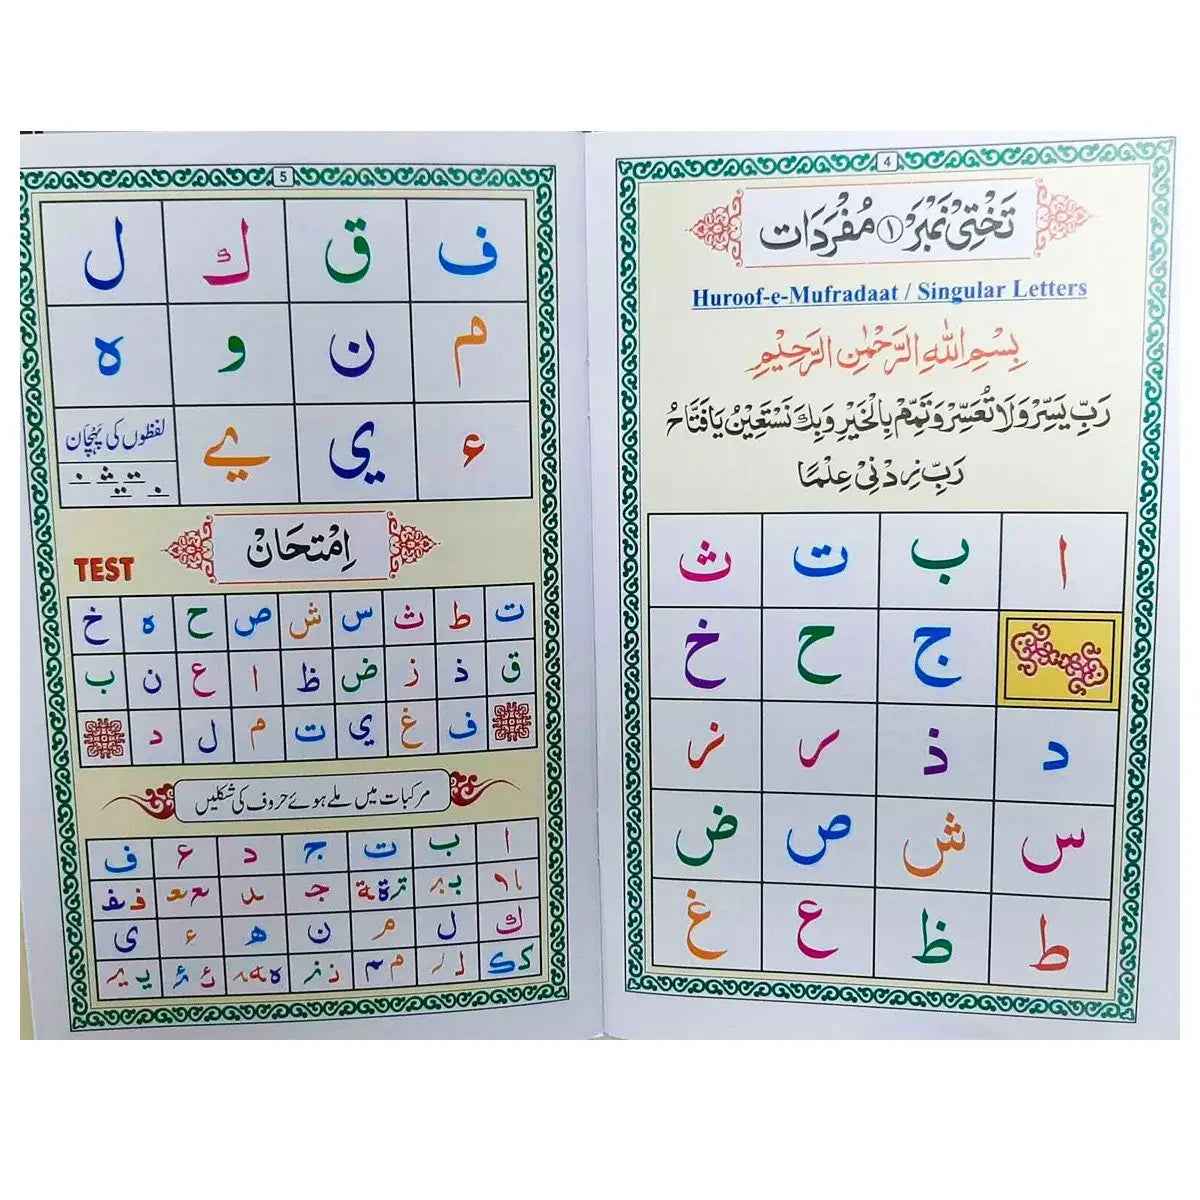 4
تَخْتِیْ نَمْبَرْ ۱ مُفْرَدَات
Huroof-e-Mufradaat / Singular Letters
بِسْمِ اللّٰهِ الرَّحْمٰنِ الرَّحِيْمِ
رَبِّ يَسِّرْ وَلَا تُعَسِّرْ وَتَمِّمْ بِالْخَيْرِ وَبِكَ نَسْتَعِيْنُ يَا فَتَّاحُ
رَبِّ زِدْنِيْ عِلْمًا
ا ب ت ث
ج ح خ
د ذ ر ز
س ش ص ض
ط ظ ع غ
5
ف ق ك ل
م ن و ه
ء ي ے لفظوں کی پہچان
اِمْتِحَانْ
TEST
ت ط ث س ش ص ح ه خ
ق ذ ز ض ظ ا ع ن ب
ف غ ي ت م ل د
مرکبات میں ملے ہوئے حروف کی شکلیں
ا ب ت ج د ع ف
ك ل م ن ه ء ی